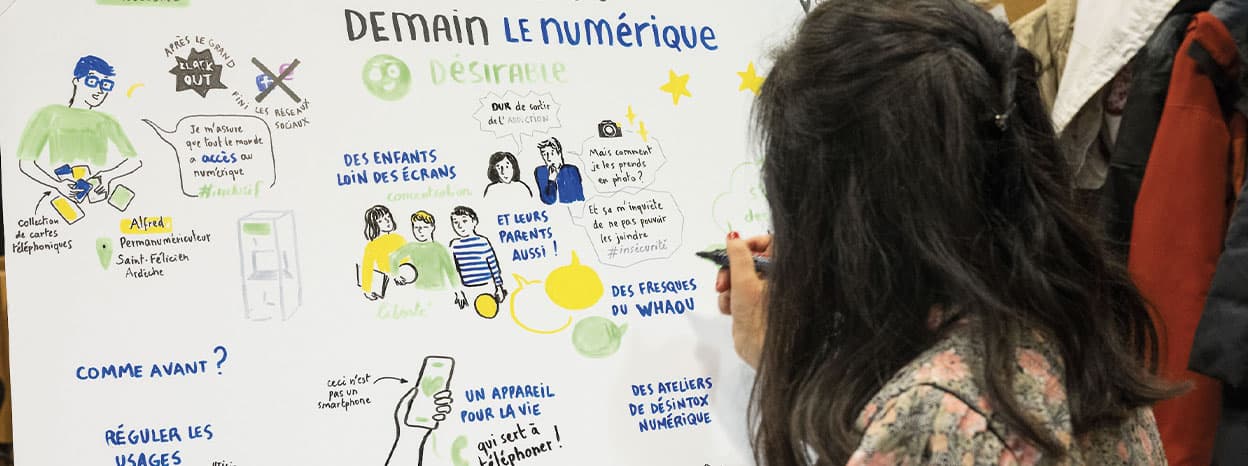 DEMAIN LE NUMÉRIQUE
DÉSIRABLE
APRÈS LE GRAND
BLACK
OUT
FINI LES RÉSEAUX
SOCIAUX
Je m'assure
que tout le monde
a accès au
numérique
#inclusif
Collection
de cartes
téléphoniques
Alfred
Permanumériculteur
Saint-Félicien
Ardèche
DUR de sortir
de l'ADDICTION
Mais comment
je les prends
en photo ?
Et sa m'inquiète
de ne pas pouvoir
les joindre
#insécurité
DES ENFANTS
LOIN DES ÉCRANS
concentration
ET LEURS
PARENTS
AUSSI !
Liberté
DES FRESQUES
DU WHAOU
COMME AVANT ?
RÉGULER LES
USAGES
ceci n'est
pas un
smartphone
UN APPAREIL
POUR LA VIE
qui sert à
téléphoner !
DES ATELIERS
DE DÉSINTOX
NUMÉRIQUE